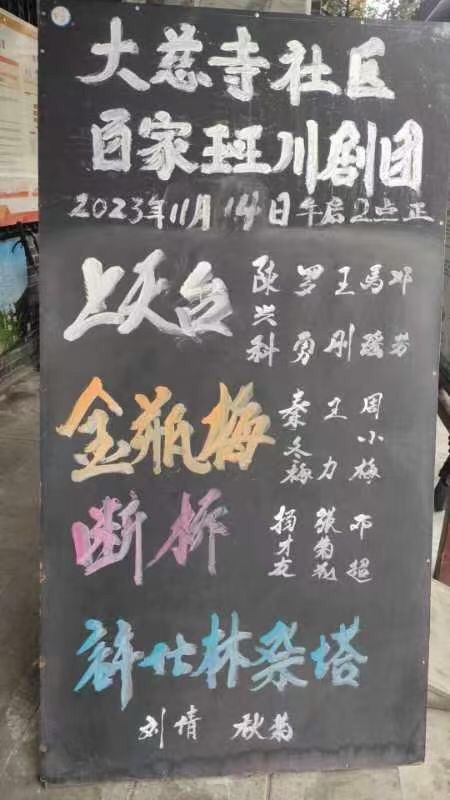 大慈寺社区
百家班川剧团
2023年11月14日午后2点正
上天台 陈兴科 罗勇 王刚 马强 邓芳
金瓶梅 秦冬梅 卫力 周小梅
断桥 杨才友 张菊花 邓超
许仕林祭塔
刘倩 秋菊